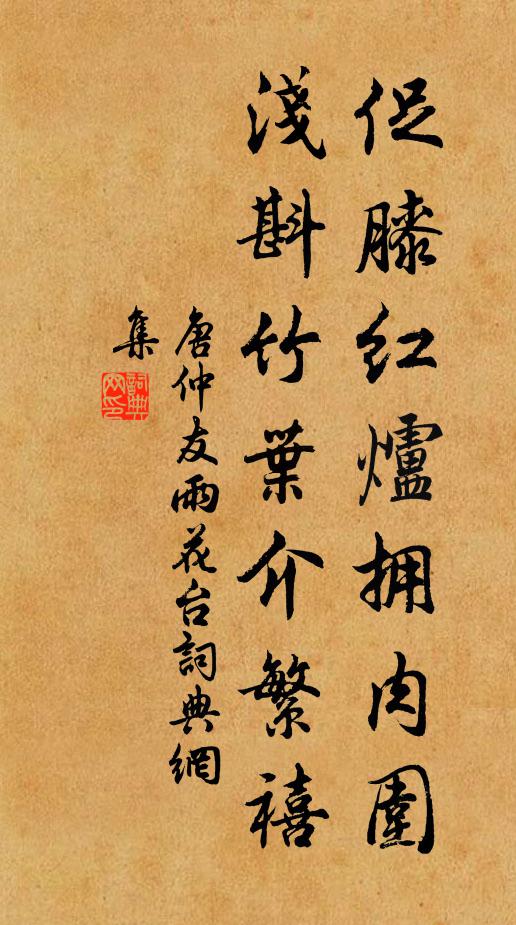 促膝紅爐擁肉圍
淺斟竹葉介繁禧
唐仲友雨花台詞典網
集
詞典網印